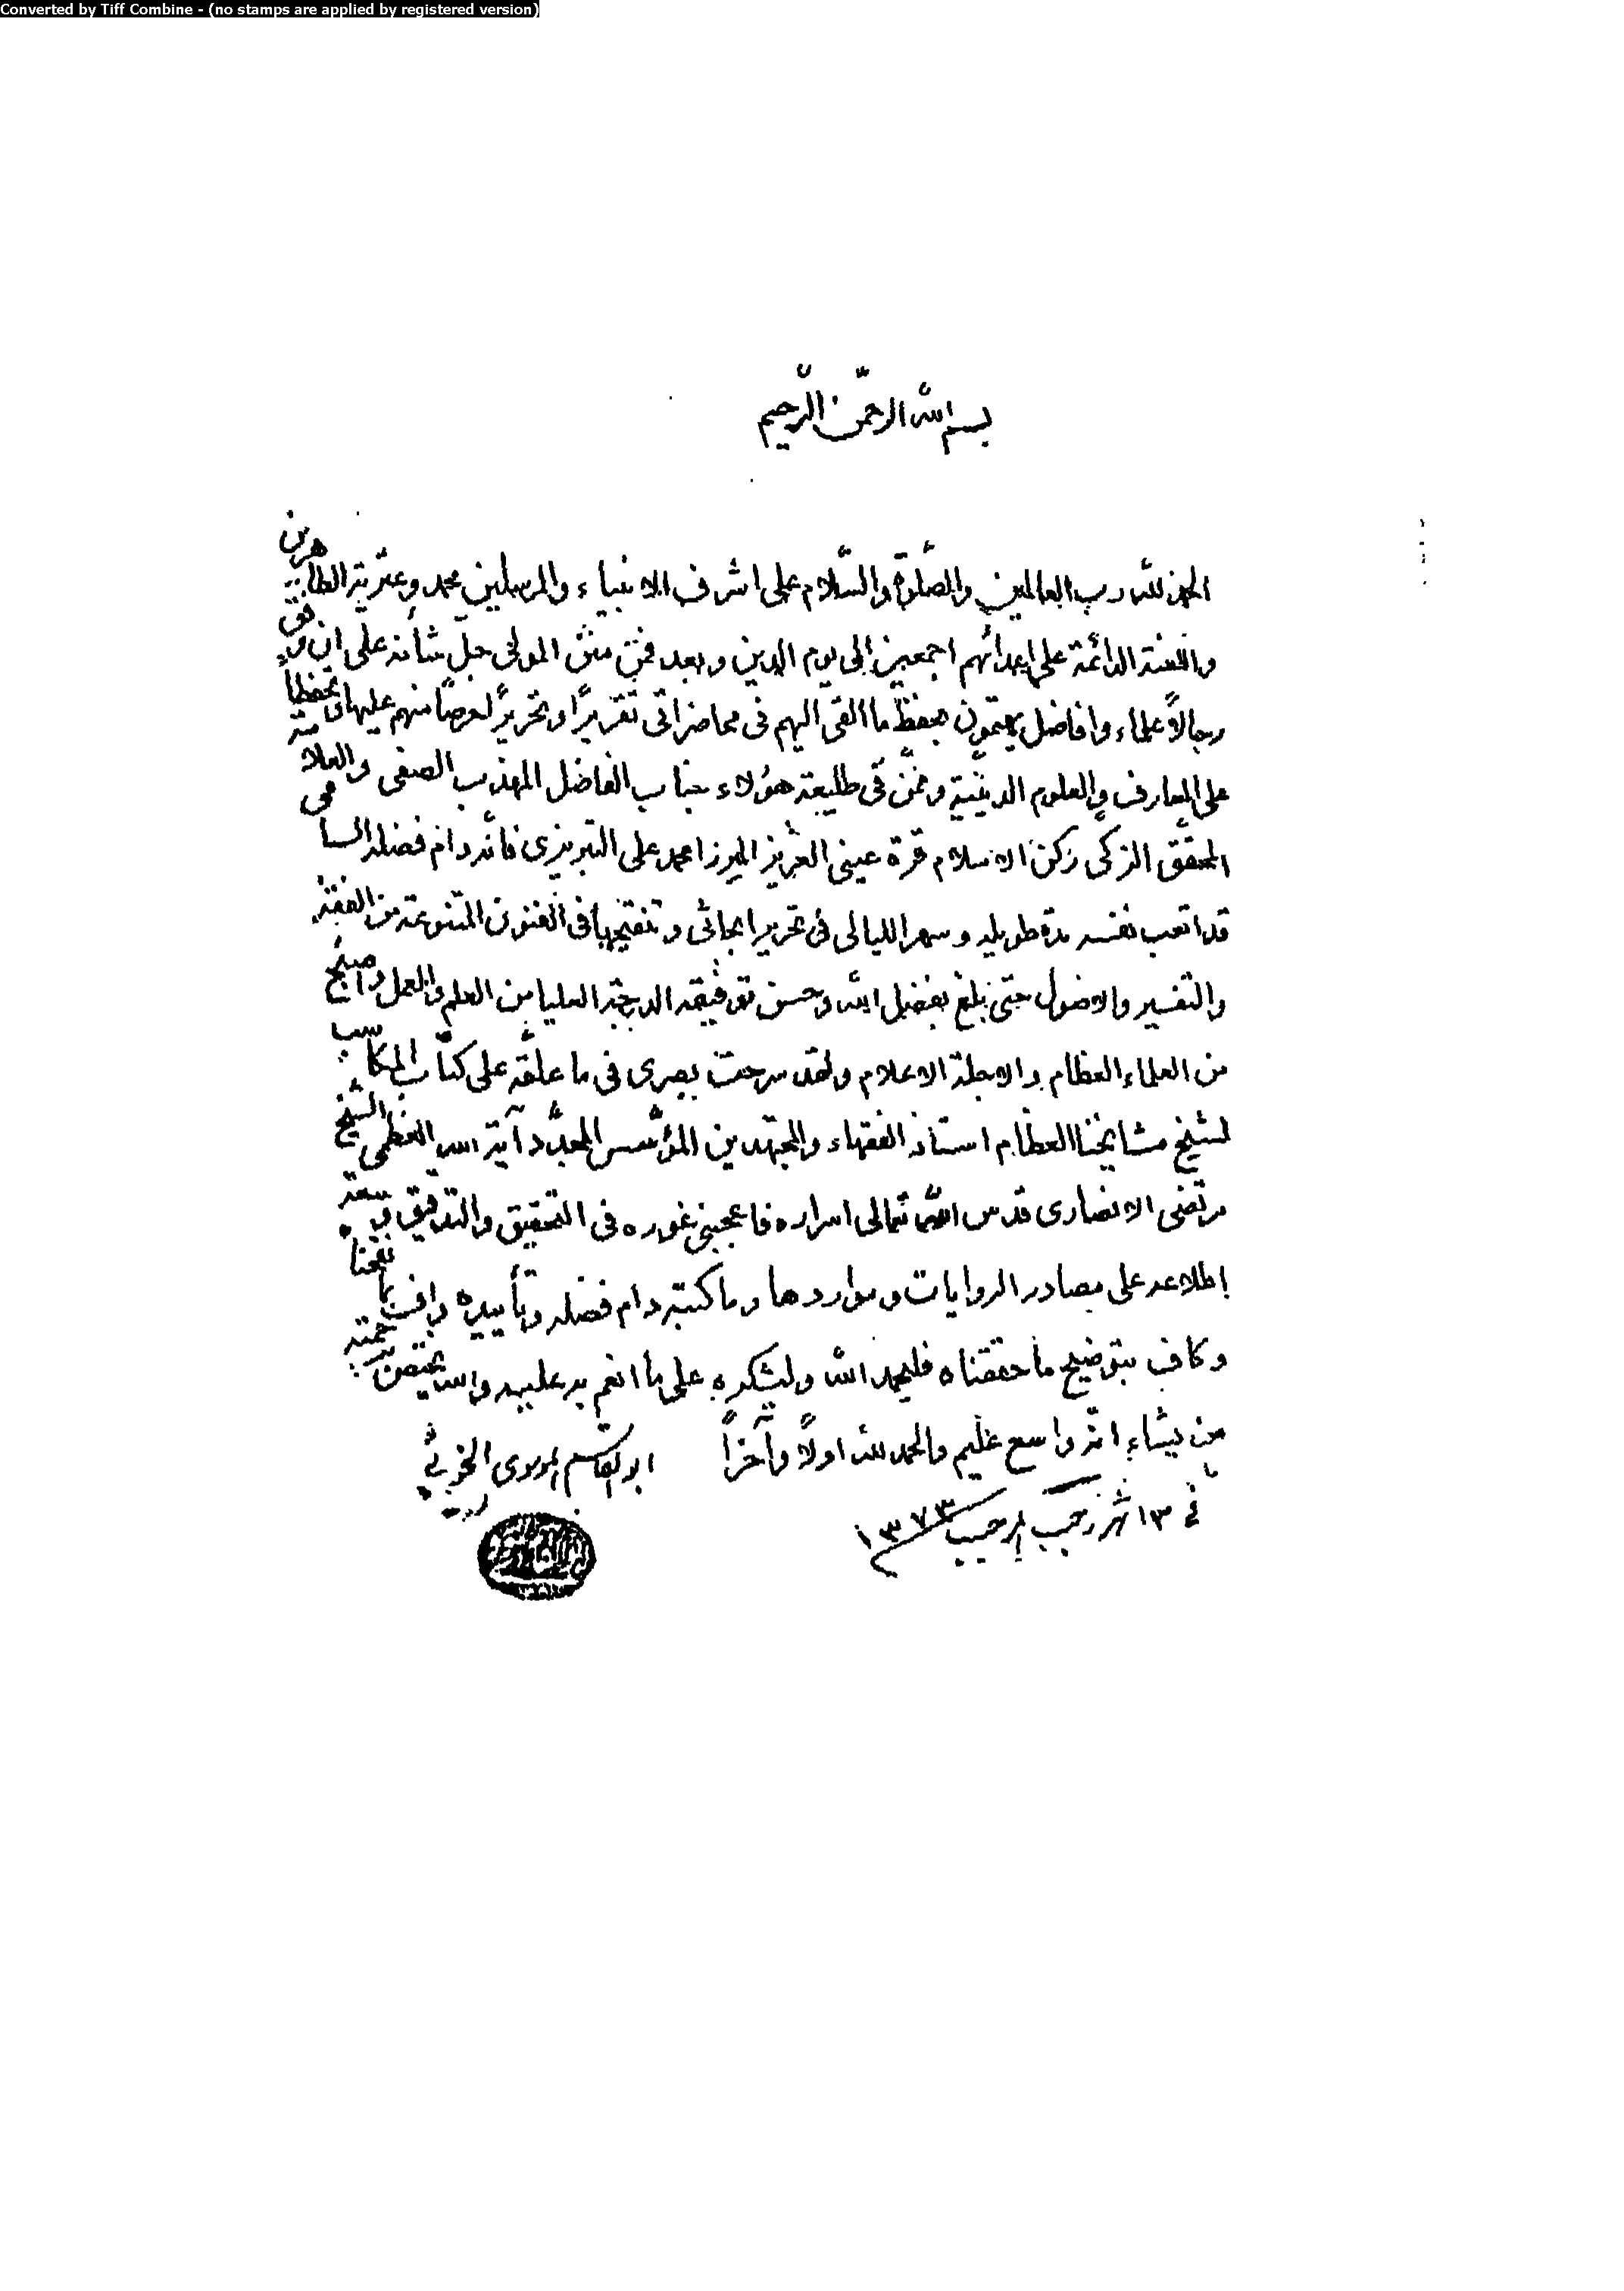 Converted by Tiff Combine - (no stamps are applied by registered version)
بسم الله الرحمن الرّحيم
الحمد لله رب العالمين والصّلوة والسّلام على اشرف الانبياء والمرسلين محمد وعترته الطاهرين
واللعنة الدائمة على اعدائهم اجمعين الى يوم الدين وبعد فمن منن المولى جلّ شأنه على ان وفق
رجالاً علماء وافاضل يهتمون بحفظ ما القى اليهم فى محاضراتى تقريرًا وتحريرًا حرصًا منهم عليها وتحفظاً
على المعارف والعلوم الدينيّة وممّن فى طليعة هؤلاء جناب الفاضل المهذب الصفى والعلامة
المحقّق الزكى ركن الاسلام قرة عينى العزيز الميرزا محمد على التبريزى فانّه دام فضله السامى
قد اتعب نفسه مدة طويلة وسهر الليالى فى تحرير ابحاثى وتنقيحها فى الفنون المتنوعة من الفقه
والتفسير والاصول حتى بلغ بفضل الله وحسن توفيقه الدرجة العليا من العلم والعمل واصبح
من العلماء العظام والاجلة الاعلام ولقد سرحت بصرى فى ما علقه على كتاب المكاسب
لشيخ مشايخنا العظام استاذ الفقهاء والمجتهدين المؤسّس المجدّد آية الله العظمى الشيخ
مرتضى الانصارى قدس الله تعالى اسراره فاعجبنى غوره فى التحقيق والتدقيق وسعة
اطلاعه على مصادر الروايات ومواردها وما كتبه دام فضله وتأييده واف بما نقحناه
وكاف بتوضيح ما حققناه فليحمد الله وليشكره على ما انعم به عليه والله يختص برحمته
من يشاء انّه واسع عليم والحمد لله اولاً وآخراً ابو القاسم الموسوى الخوئي
في ١٣ شهر رجب المرجب ١٣٧٣